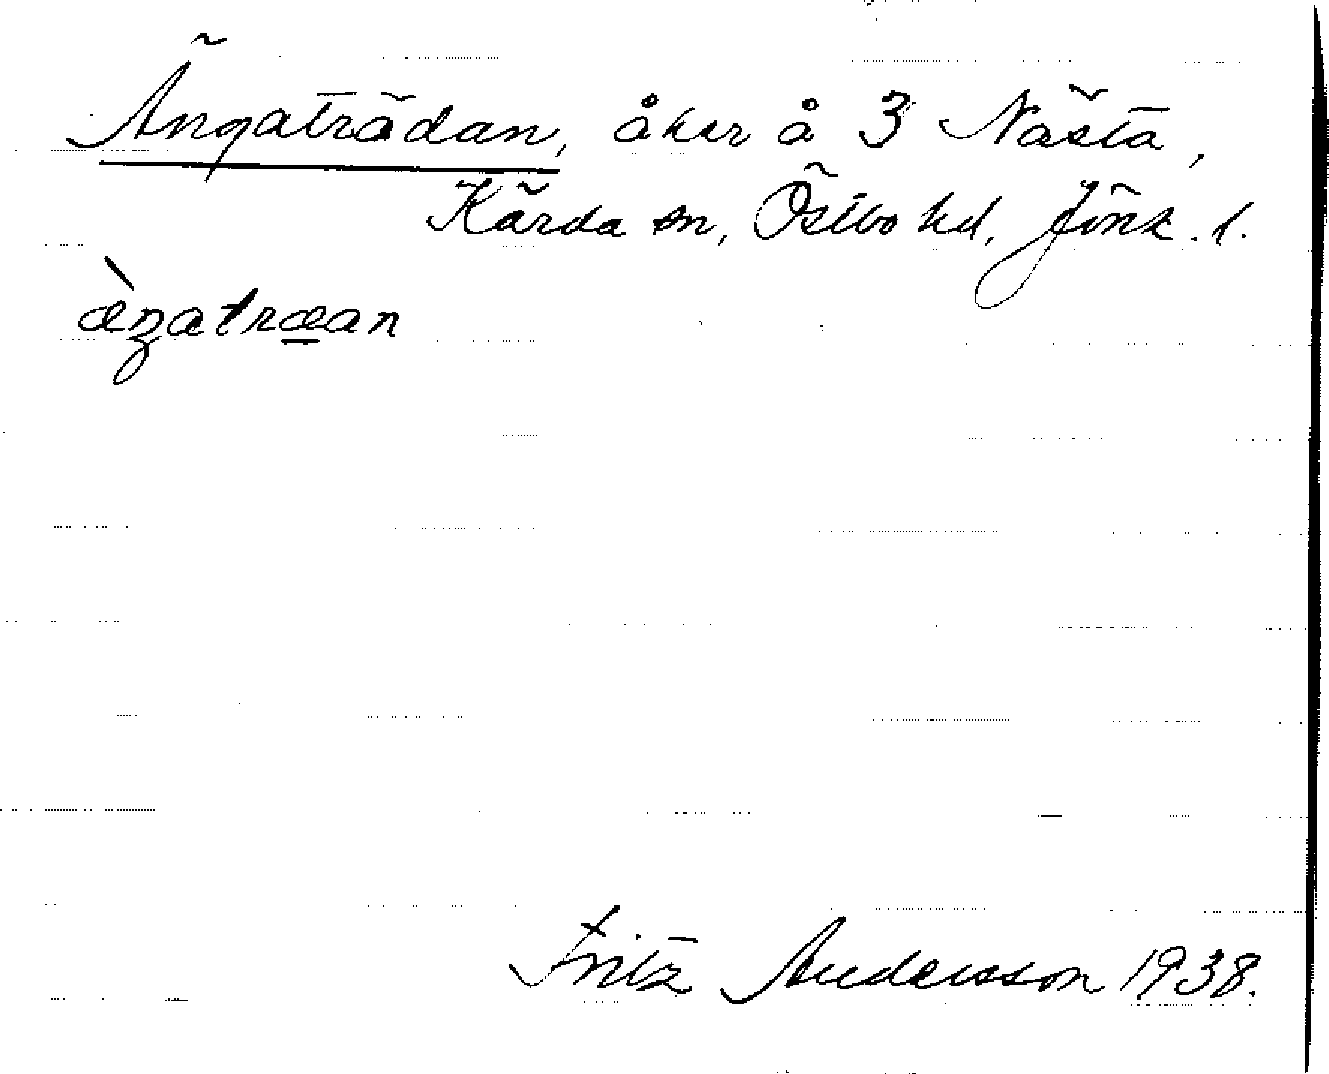 Ängaträdan, åker å 3 Nästa,
Kärda sn, Östbo hd, Jönk. l.
æ̀ŋatræ̲an
Fritz Andersson 1938.